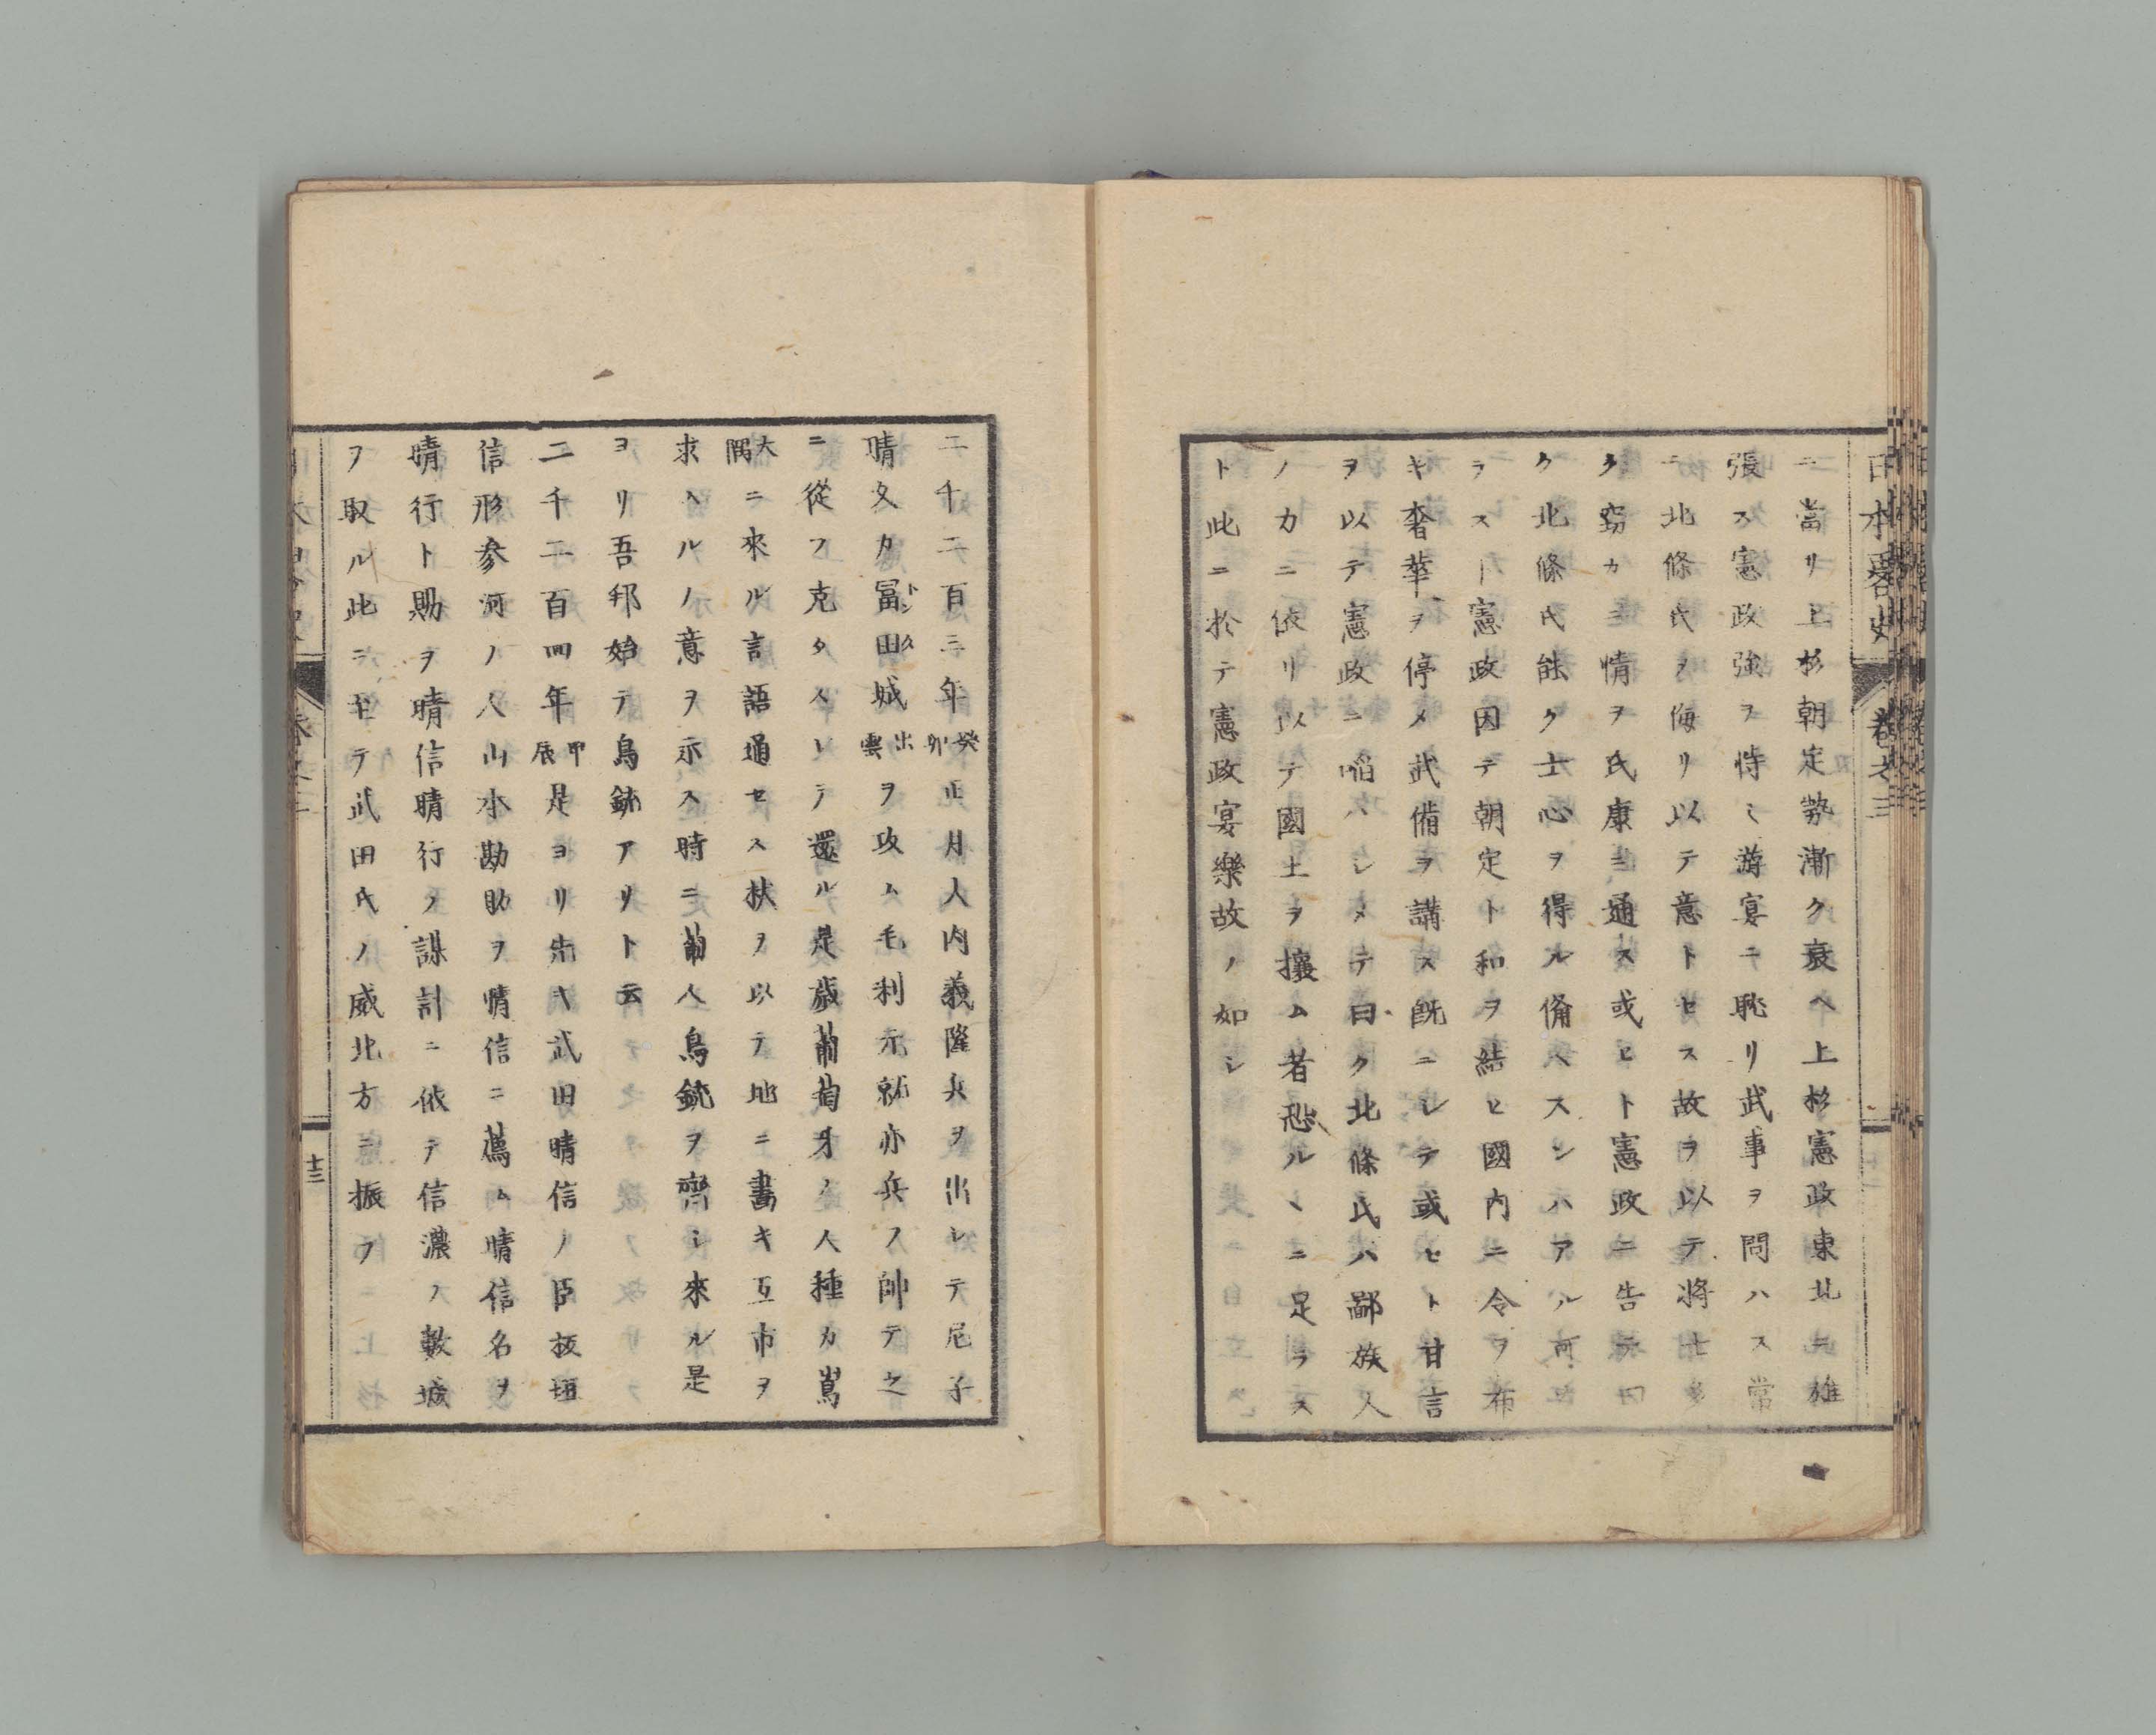 日本畧史 卷之三
ニ當リ上杉朝定勢漸ク衰ヘ上杉憲政東北ニ雄
張ス憲政強ヲ恃ミ游宴ニ耽リ武事ヲ問ハス常
ニ北條氏ヲ侮リ以テ意トセス故ヲ以テ將士多
ク窃カニ情ヲ氏康ニ通ス或ヒト憲政ニ告テ曰
ク北條氏能ク士心ヲ得ル備ヘスンハアル可カ
ラスト憲政因テ朝定ト和ヲ結ヒ國内ニ令ヲ布
キ奢華ヲ停メ武備ヲ講ス既ニシテ或ヒト甘言
ヲ以テ憲政ニ啗ハシメテ曰ク北條氏ハ鄙族人
ノ力ニ依リ以テ國土ヲ攘ム者恐ルヽニ足ラス
ト此ニ於テ憲政宴樂故ノ如シ
二千二百三年癸卯正月大内義隆兵ヲ出シテ尼子
晴久カ冨田トンタ城出雲ヲ攻ム毛利元就亦兵ヲ帥テ之
ニ從フ克タスシテ還ル是歳葡萄牙ノ人種カ嶌
大隅ニ來ル言語通セス杖ヲ以テ地ニ畵キ互市ヲ
求ムルノ意ヲ示ス時ニ葡人鳥銃ヲ齎シ來ル是
ヨリ吾邦始テ鳥銃アリト云
二千二百四年甲辰是ヨリ先キ武田晴信ノ臣板垣
信形參河ノ人山本勘助ヲ晴信ニ薦ム晴信名ヲ
晴行ト賜ヲ晴信晴行ノ謀計ニ依テ信濃ノ數城
ヲ取ル此ニ至テ武田氏ノ威北方ニ振フ
十三